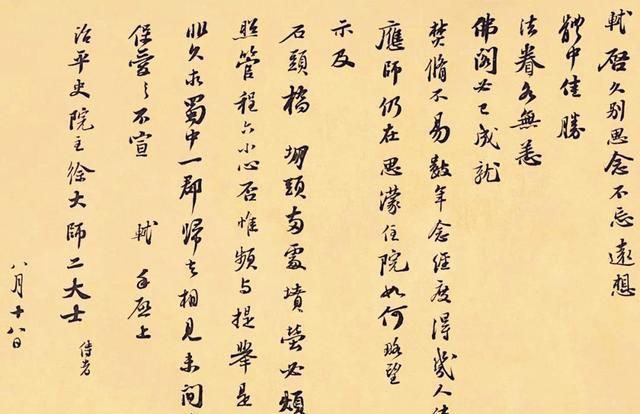 軾啓久别思念不忘遠想
體中佳勝
法眷各無恙
佛閣必已成就
焚脩不易數年念經度得幾人
應師仍在思濛住院如何略望
示及
石頭橋堋頭兩處墳塋必煩
照管程六小心否惟頻与提舉是
非久求蜀中一郡歸去相見未間
保愛之不宣 軾手啓上
治平史院主徐大師二大士 侍者
八月十八日